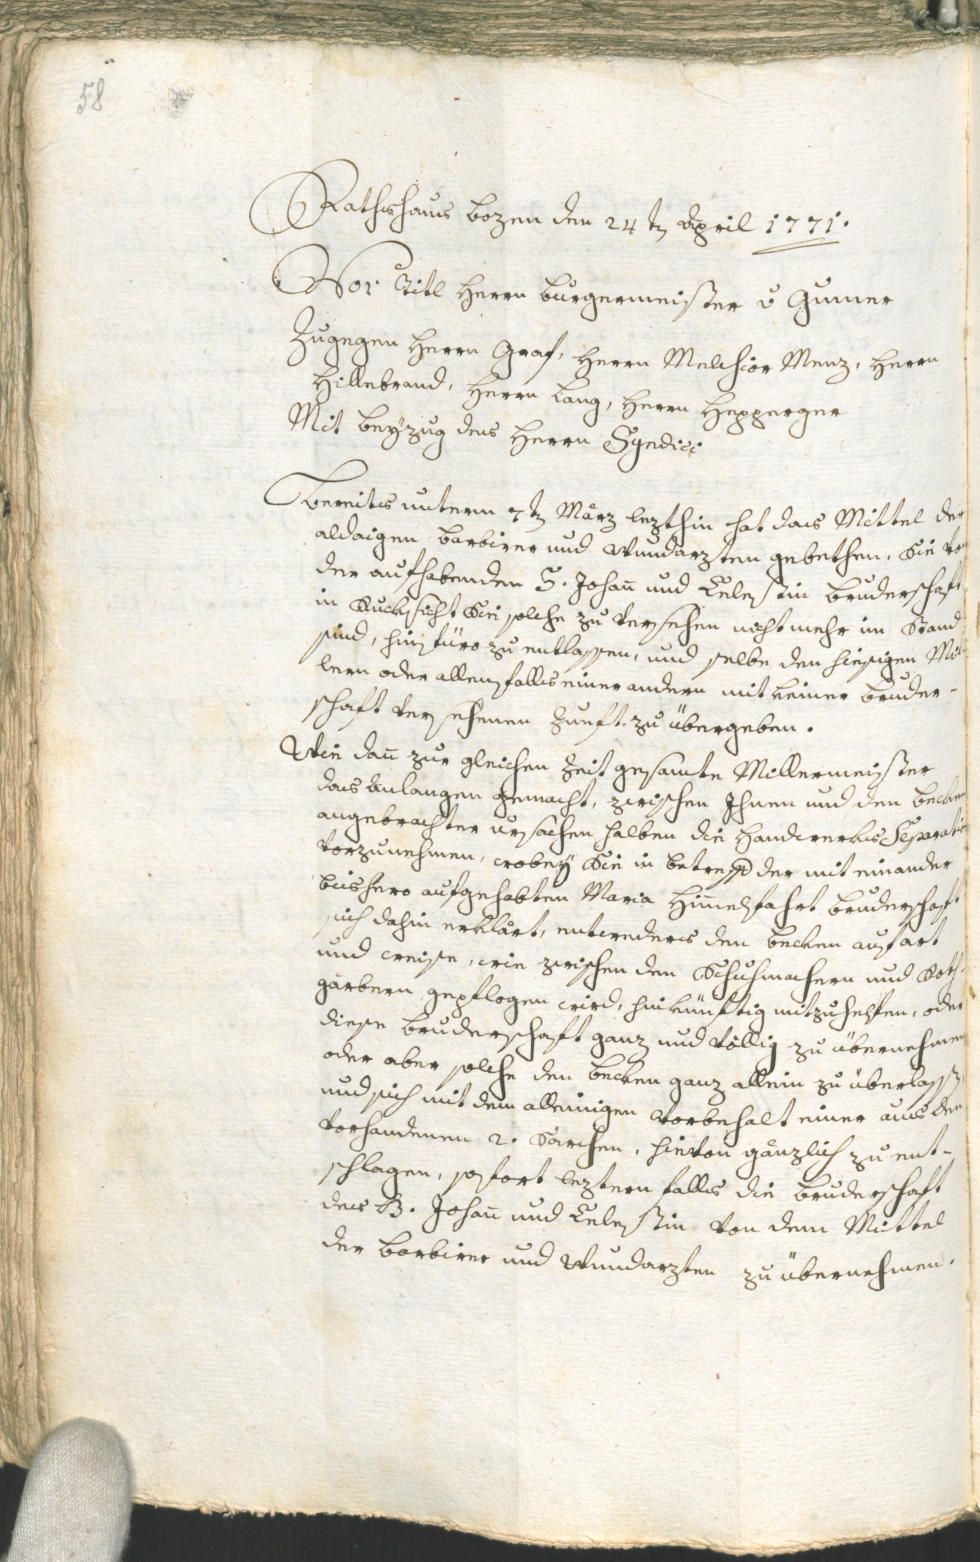 58
Rathshaus bozen den 24t april 1771.
Vor Titl Herrn burgermeister v Gumer
Zugegen Herrn Graf, Herrn Melchior Menz, Herrn
Hillebrand, Herrn Lang, Herrn Hepperger
Mit beÿzug des Herrn Sÿndici
Bereits unterm 7t März lezthin hat das Mittel der
aldaigen barbirer und wundarzten gebethen, Sie von
der aufhabenden S. Johan̄ und Celestin bruderschaft
in Rucksicht Sie solche zu versehen nicht mehr im Stand
sind, hinfüro zu entlassen, und selbe den hiesigen Mil-
lern oder allenfalls einer andern mit keiner bruder-
schaft versehenen Zunft zu übergeben.
Wie dan̄ zur gleichen Zeit gesamte Millermeister
das anlangen gemacht, zwischen Ihnen und den becken
angebrachter ursachen halben die Handwerks Separation
vorzunehmen, wobeÿ Sie in betreff der mit einander
bishero aufgehabten Maria Him̄elfahrt bruderschaft
sich dahin erklärt, entweders den becken auf art
und weise, wie zwischen den Schuhmachern und Roth-
gärbern gepflogen wird, hinkünftig mitzuhelfen, oder
diese bruderschaft ganz und völlig zu übernehmen
oder aber solche den becken ganz allein zu überlassen,
und sich mit dem alleinigen vorbehalt einer aus den
vorhandenen 2. , hievon gänzlich zu ent-
schlagen, sofort leztern falls die bruderschaft
des S. Johan̄ und Celestin von dem Mittel
der barbirer und wundarzten zu übernehmen.